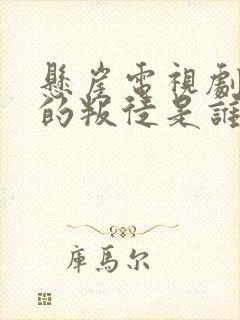 懸崖電視劇
的叛徒是誰
庫馬尔